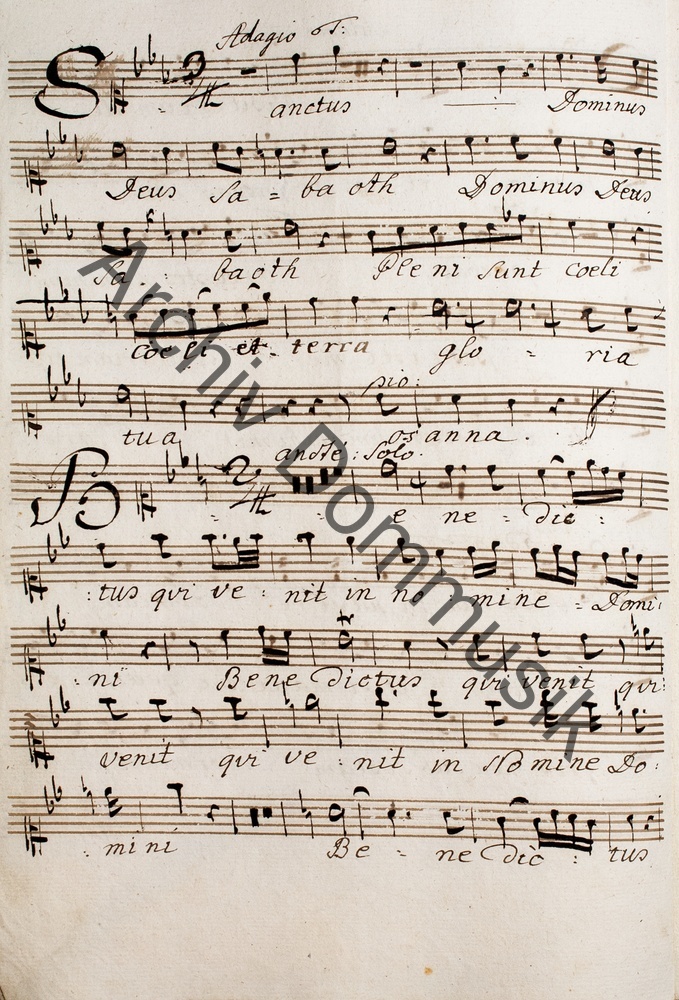 Adagio
Sanctus — Dominus
Deus Sa = ba oth Dominus Deus
Sa : baoth Pleni sunt coeli
coeli et terra glo = ria
pio:
tua osanna.
andte: Solo.
Be = ne = dic :
:tus qui ve = nit in no mine = Domi:
:ni Bene dictus qui venit qui
venit qui ve : nit in No mine Do:
: mini Be = ne dic : tus
Archiv Dommusik